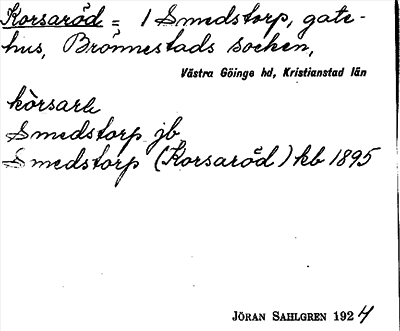 Korsaröd = 1 Smedstorp, gate-
hus, Brönnestads socken,
Västra Göinge hd, Kristianstad län
kòrsarə
Smedstorp jb
Smedstorp (Korsaröd) kb 1895
JÖRAN SAHLGREN 1924